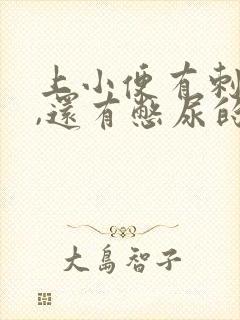 上小便有刺
,還有憋尿的
大島智子